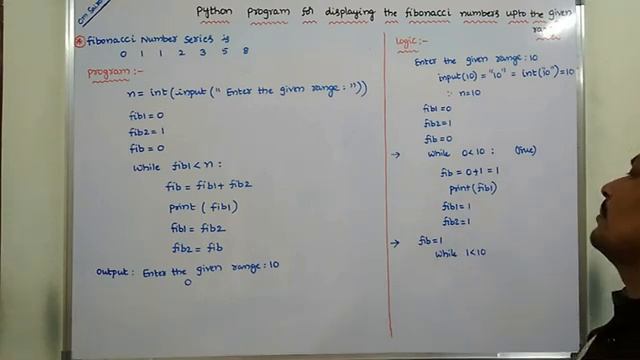 Python Program for displaying the fibonacci numbers upto the given
range
fibonacci Number Series is
0 1 1 2 3 5 8
Program:-
n= int(input("Enter the given range:"))
fib1=0
fib2=1
fib=0
while fib1<n:
fib=fib1+fib2
print(fib1)
fib1=fib2
fib2=fib
Output: Enter the given range:10
0
Logic:-
Enter the given range:10
input(10)="10"=int("10")=10
∵ n=10
fib1=0
fib2=1
fib=0
→ while 0<10: (True)
fib=0+1=1
print(fib1)
fib1=1
fib2=1
→ fib=1
while 1<10